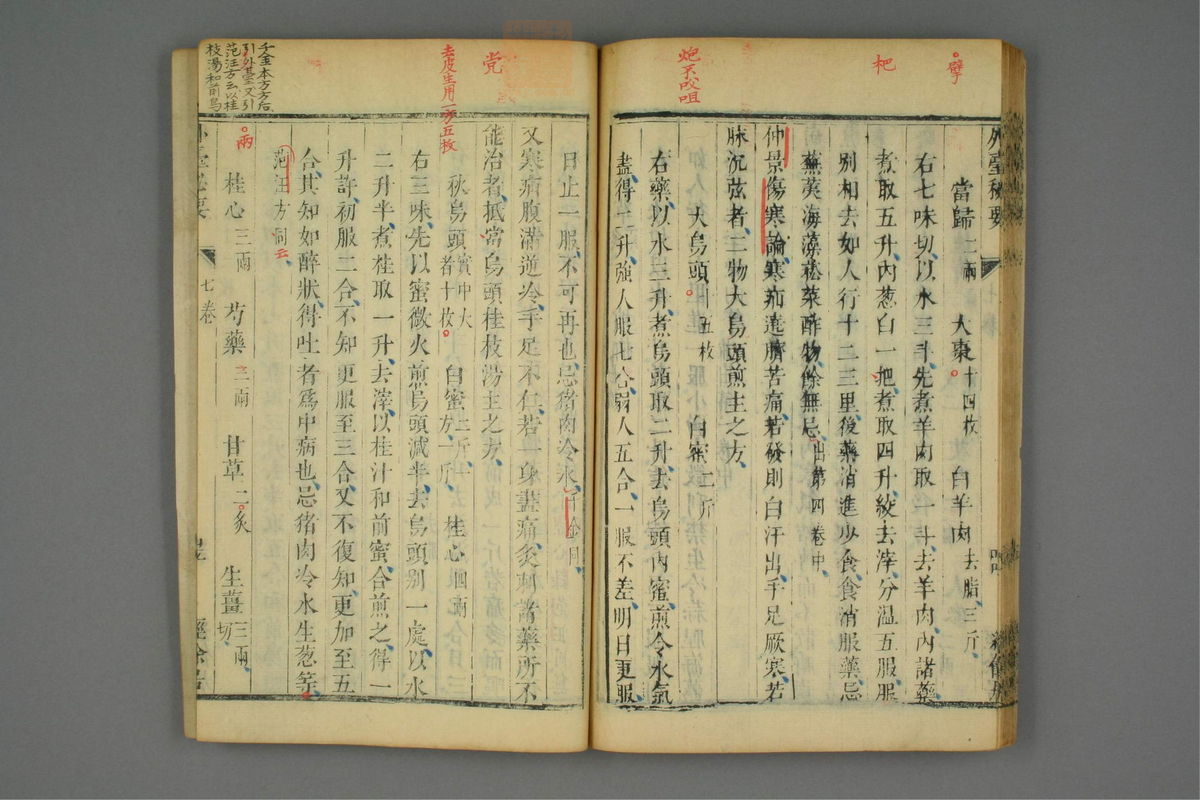 擘
杷
炮不㕮咀
外臺秘要
當歸二兩 大棗十四枚 白羊肉去脂三斤
右七味切以水三斗先煮羊肉取一斗去羊肉內諸藥
煮取五升內葱白一把煮取四升絞去滓分溫五服服
別相去如人行十二三里後藥消進少食食消服藥忌
蕪荑海藻菘菜酢物餘無忌出第四卷中
仲景傷寒論寒疝遶臍苦痛若發則白汗出手足厥寒若
脉沉弦者二物大烏頭煎主之方
大烏頭十五枚 白蜜二斤
右藥以水三升煮烏頭取二升去烏頭內蜜煎令水氣
盡得二升強人服七合弱人五合一服不差明日更服
党
去皮生用一方五枚
日止一服不可再也忌猪肉冷水千金同
又寒疝腹滿逆冷手足不仁若一身盡痛灸刺諸藥所不
能治者抵當烏頭桂枝湯主之方
秋烏頭實中大者十枚 白蜜二斤一方一斤 桂心四兩
右三味先以蜜微火煎烏頭減半去烏頭別一處以水
二升半煮桂取一升去滓以桂汁和前蜜合煎之得一
升許初服二合不知更服至三合又不復知更加至五
合其知如醉狀得吐者爲中病也忌猪肉冷水生葱等
范汪方同云
兩
桂心三兩 芍藥三兩 甘草二炙 生薑三兩切
七卷
千金本方方后
引外臺又引
范汪方云以桂
枝湯和前烏